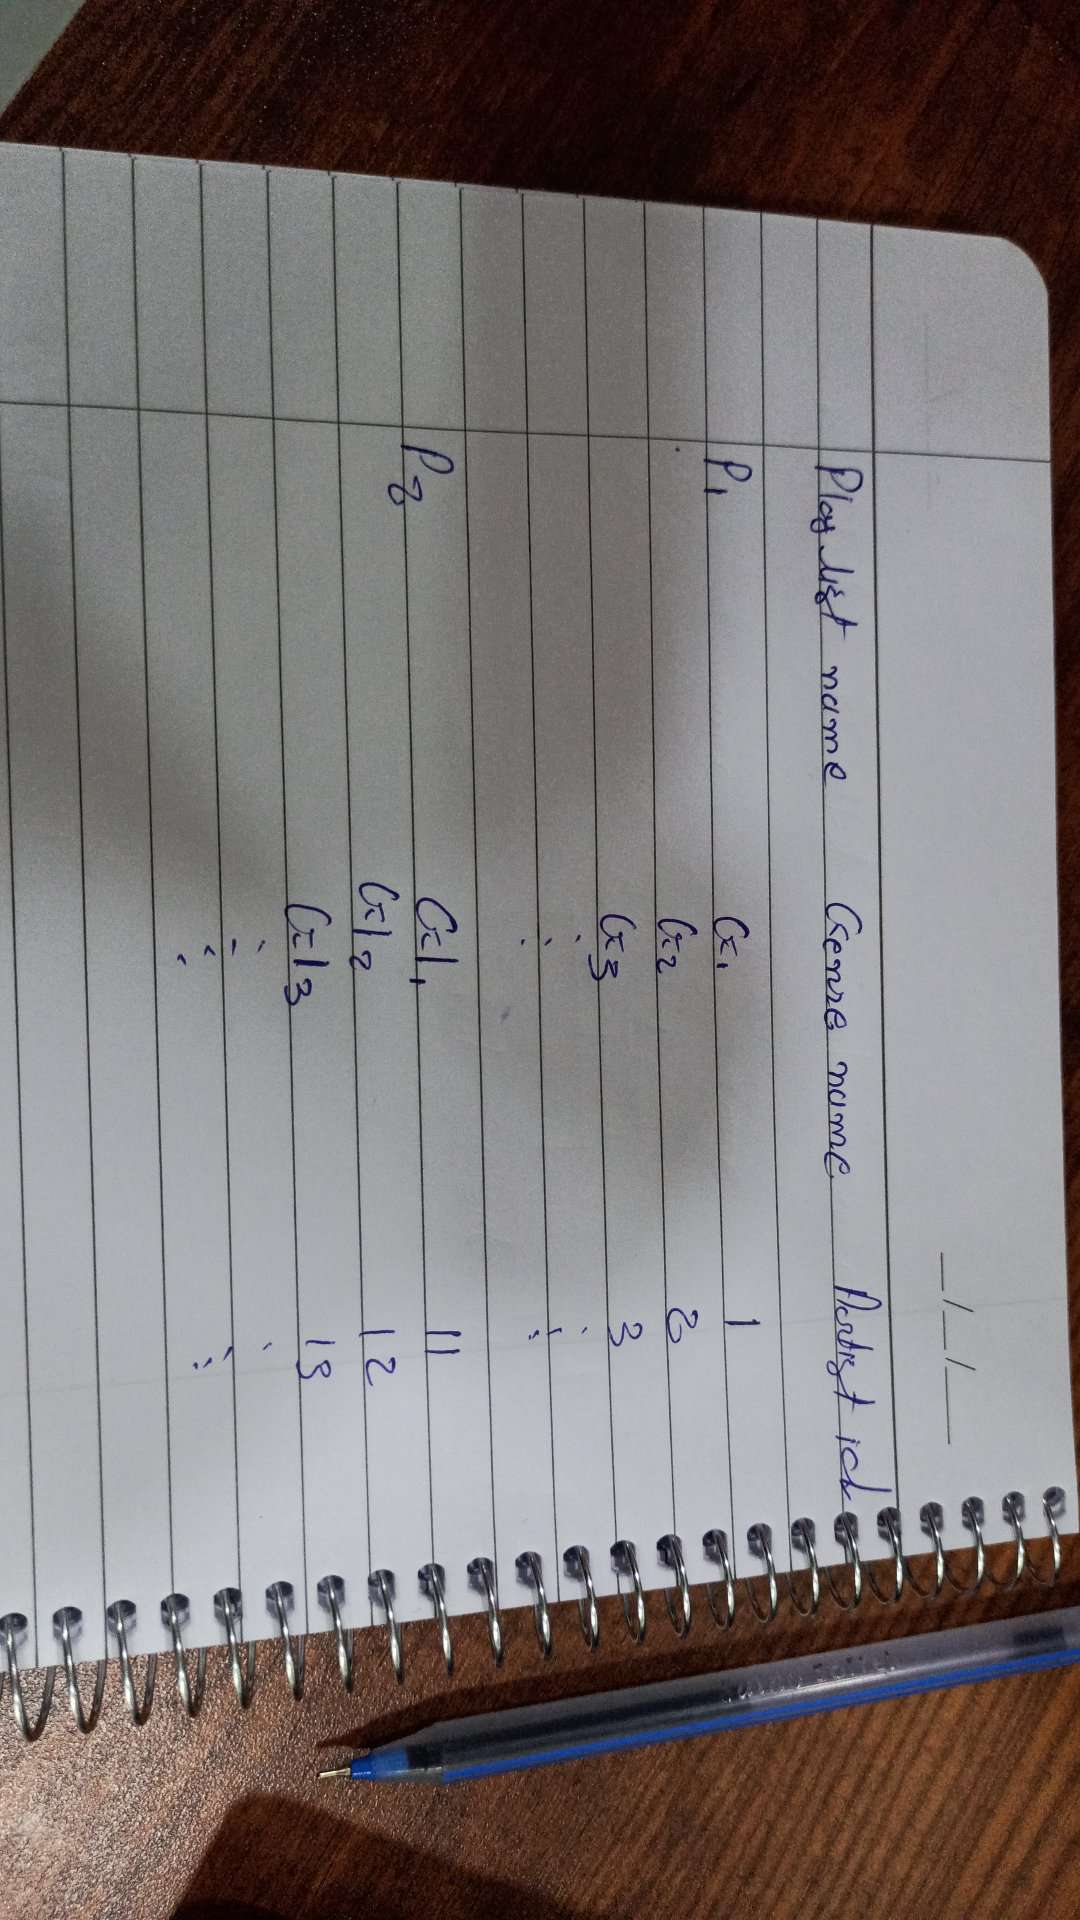 __/__/____
Playlist name Genre name Artist id
P1 G1 1
G2 2
G3 3
P2 G11 11
G12 12
G13 13